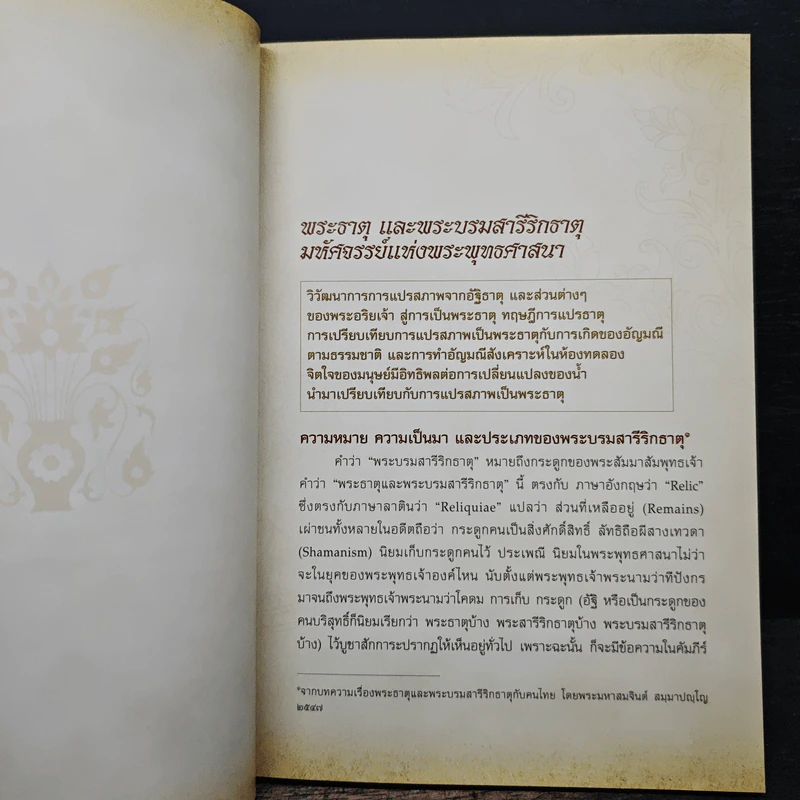 พระธาตุ และพระบรมสารีริกธาตุ
มหัศจรรย์แห่งพระพุทธศาสนา
วิวัฒนาการการแปรสภาพจากอัฐิธาตุ และส่วนต่างๆ
ของพระอริยเจ้า สู่การเป็นพระธาตุ ทฤษฎีการแปรธาตุ
การเปรียบเทียบการแปรสภาพเป็นพระธาตุกับการเกิดของอัญมณี
ตามธรรมชาติ และการทำอัญมณีสังเคราะห์ในห้องทดลอง
จิตใจของมนุษย์มีอิทธิพลต่อการเปลี่ยนแปลงของน้ำ
นำมาเปรียบเทียบกับการแปรสภาพเป็นพระธาตุ
ความหมาย ความเป็นมา และประเภทของพระบรมสารีริกธาตุ*
คำว่า “พระบรมสารีริกธาตุ” หมายถึงกระดูกของพระสัมมาสัมพุทธเจ้า
คำว่า “พระธาตุและพระบรมสารีริกธาตุ” นี้ ตรงกับ ภาษาอังกฤษว่า “Relic”
ซึ่งตรงกับภาษาลาตินว่า “Reliquiae” แปลว่า ส่วนที่เหลืออยู่ (Remains)
เผ่าชนทั้งหลายในอดีตถือว่า กระดูกคนเป็นสิ่งศักดิ์สิทธิ์ ลัทธิถือผีสางเทวดา
(Shamanism) นิยมเก็บกระดูกคนไว้ ประเพณี นิยมในพระพุทธศาสนาไม่ว่า
จะในยุคของพระพุทธเจ้าองค์ไหน นับตั้งแต่พระพุทธเจ้าพระนามว่าทีปังกร
มาจนถึงพระพุทธเจ้าพระนามว่าโคดม การเก็บ กระดูก (อัฐิ หรือเป็นกระดูกของ
คนบริสุทธิ์ก็นิยมเรียกว่า พระธาตุบ้าง พระสารีริกธาตุบ้าง พระบรมสารีริกธาตุ
บ้าง) ไว้บูชาสักการะปรากฏให้เห็นอยู่ทั่วไป เพราะฉะนั้น ก็จะมีข้อความในคัมภีร์
*จากบทความเรื่องพระธาตุและพระบรมสารีริกธาตุกับคนไทย โดยพระมหาสมจินต์ สมฺมาปญฺโญ
๒๕๔๗